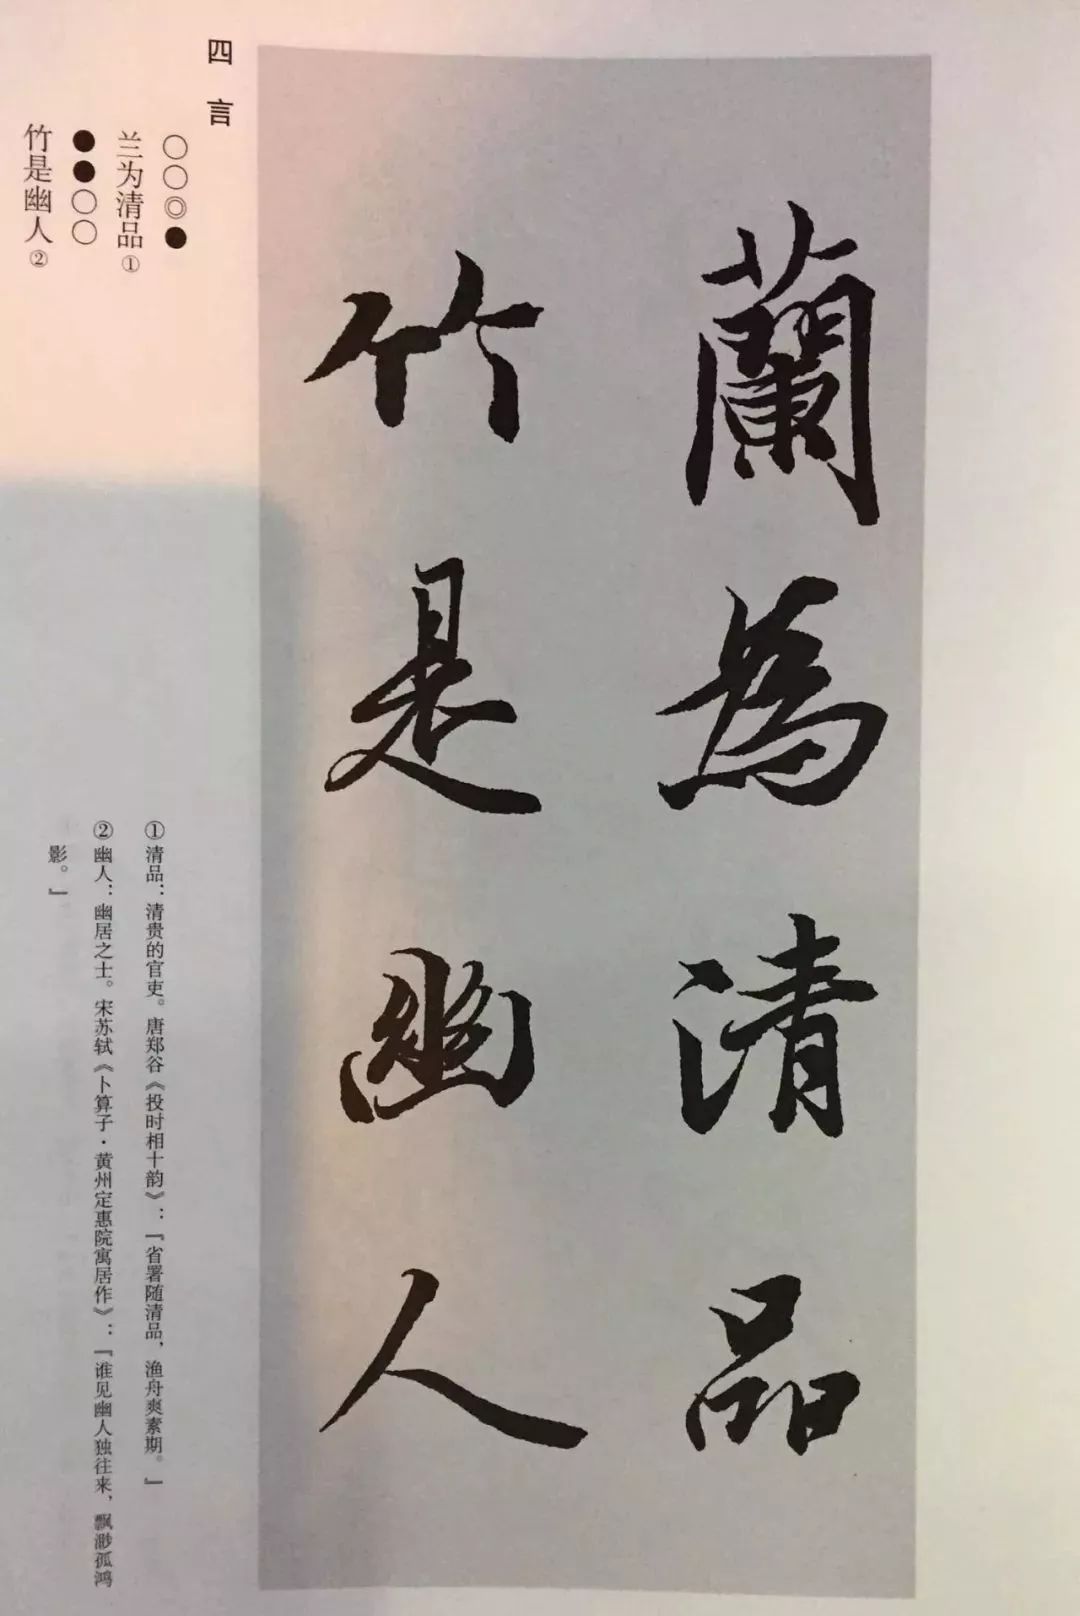 蘭為清品
竹是幽人
四言
○○◎●
兰为清品①
●●○○
竹是幽人②
①清品：清贵的官吏。唐郑谷《投时相十韵》：「省署随清品，渔舟爽素期。」
②幽人：幽居之士。宋苏轼《卜算子·黄州定惠院寓居作》：「谁见幽人独往来，飘渺孤鸿
影。」